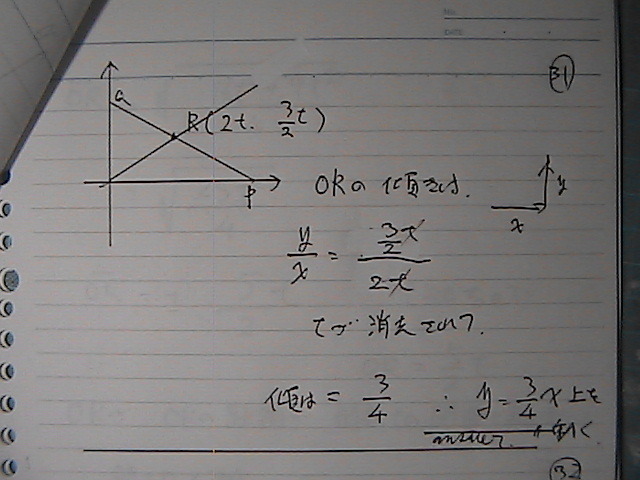 NO.
DATE
31
Q
R(2t. 3/2 t)
P
ORの傾きは.
y
x
y/x = (3/2 t)/(2t)
tが消去されて.
傾は = 3/4 ∴ y = 3/4 x 上を
answer. 動く
32